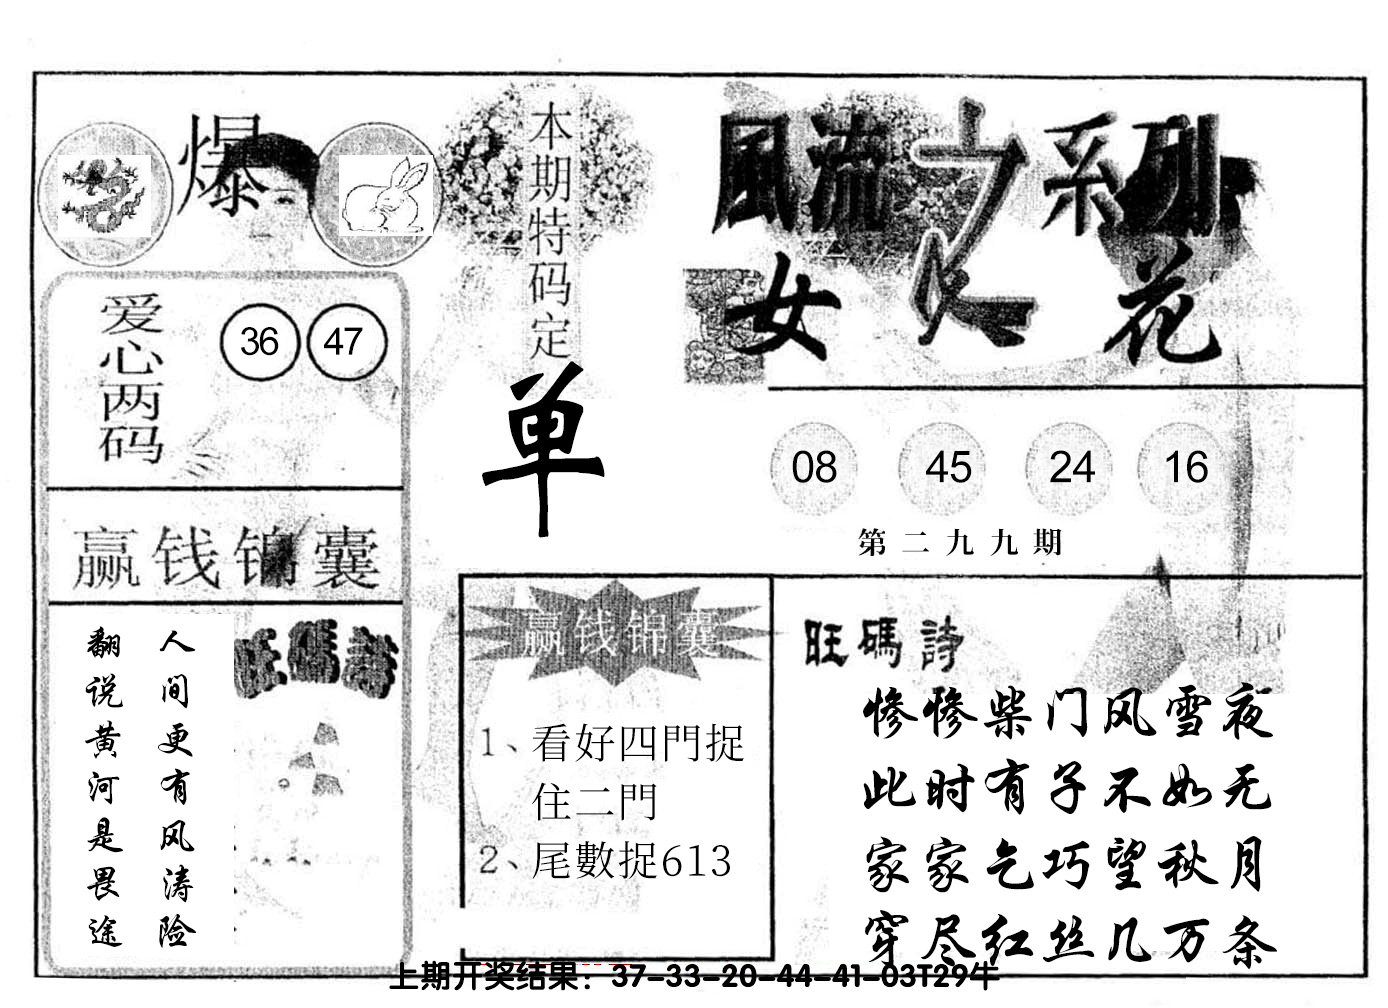 爆
本期特码定
单
風流之系列
女人花
爱心两码
36 47
08 45 24 16
第二九九期
赢钱锦囊
旺碼詩
人间更有风涛险
翻说黄河是畏途
赢钱锦囊
1、看好四門捉
住二門
2、尾數捉613
旺碼詩
惨惨柴门风雪夜
此时有子不如无
家家乞巧望秋月
穿尽红丝几万条
上期开奖结果：37-33-20-44-41-03T29牛